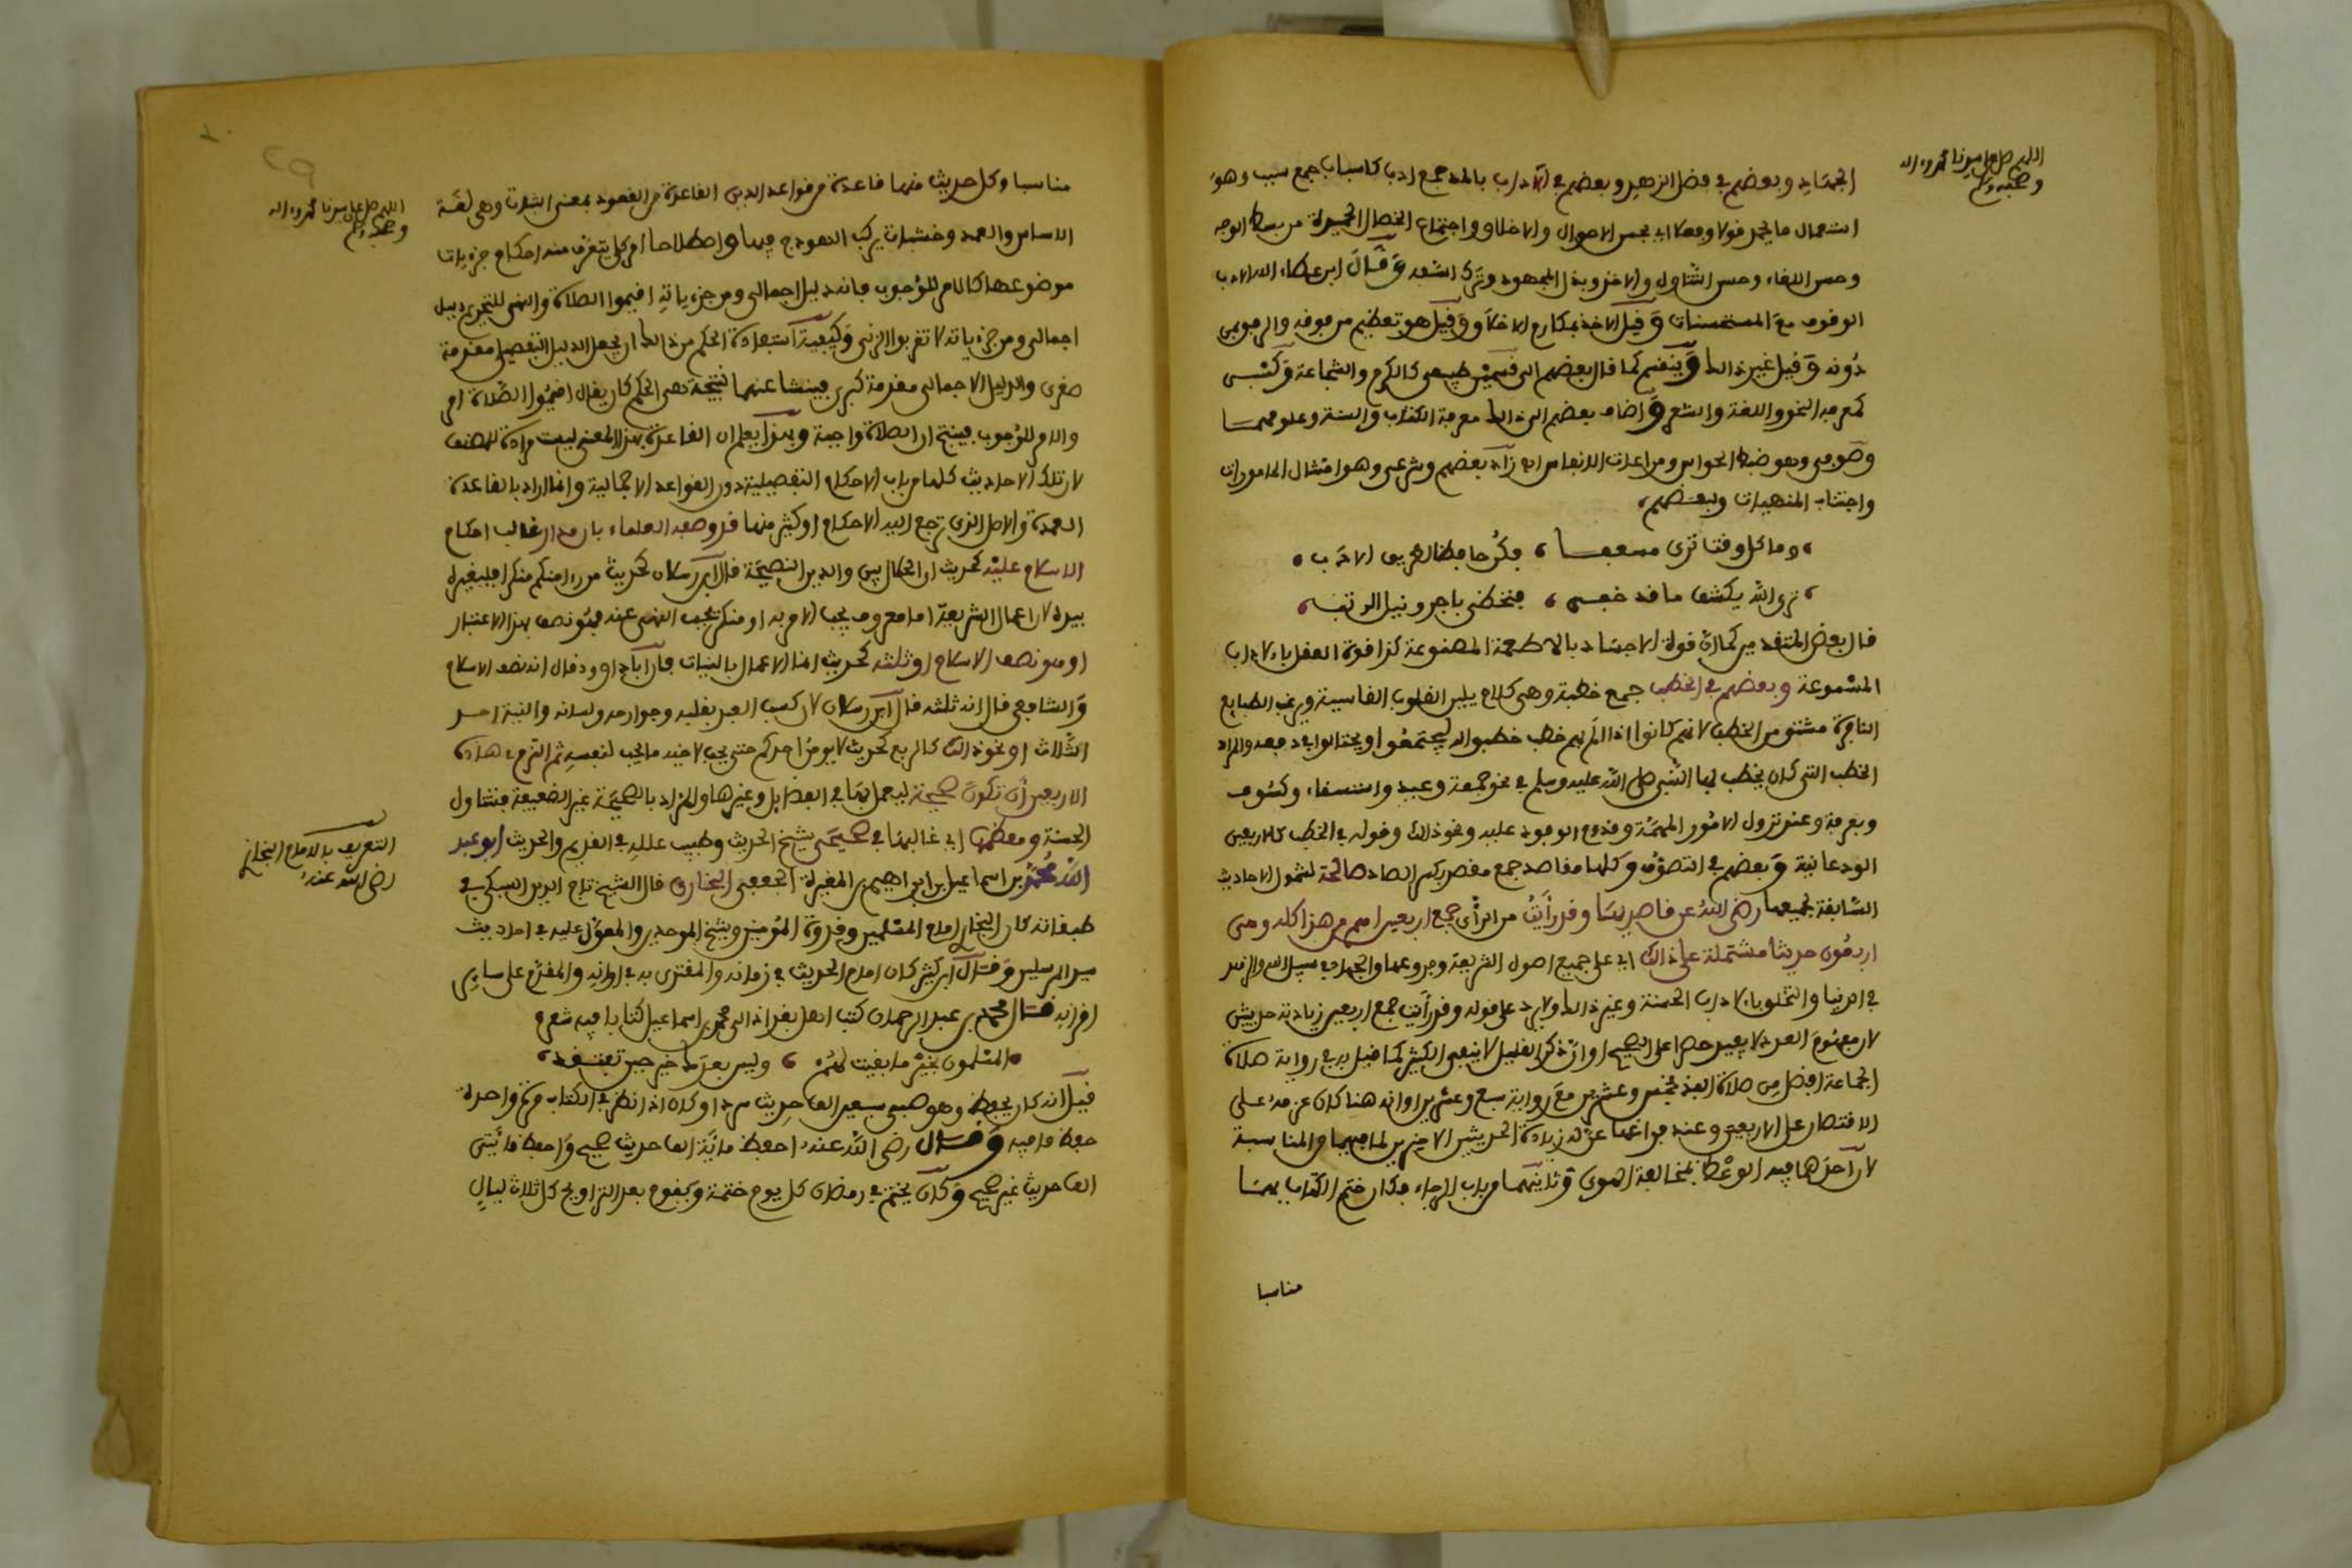 اللهم صل على سيدنا محمد وءاله
وصحبه وسلم
الجهَاد وبعضهم في فضل الزهد وبعضهم في الآداب بالمد جمع ادب كاسباب جمع سبب وهو
استعمال ما يحمد قولا وفعلا اي بحسن الاحوال والاخلاق واجتماع الخصال الحميدة من بسط الوجه
وحسن اللقاء وحسن التناول والاخذ وبذل المجهود وترك الشعد وَقَالَ ابن عطاء الله الادب
الوقوف معَ المستحسنات وَقيل الاخذ بمكارم الاخلاق وَقيل هو تعظيم من فوقه والرفق بمن
دُونه وَقيل غير ذالك وَينقسم كما قال بعضهم الى قسمين طبيعي كالكرم والشجاعة وَكسْبي
كمعرفة النحو واللغة والشعر وَاضاف بعضهم الى ذالك معرفة الكتاب والسنة وعلومهمَا
وصُوفي وهو ضبط الحواس ومراعات الانفاس اي زاد بعضهم وشرعي وهو امتثال المامورات
واجتناب المنهيات ولبعضهم
وما كل وقتا ترى مسعفا فكُن حافظا لطريق الادب
ترى الله يكشف ما قد خفى فتحظى باجر ونيل الرتب
قال بعض المتقدمين كما ان قوة الاجسَاد بالاطعمة المصنوعة كذا قوة العقل بالاداب
المسْموعة وبعضهم في الخطب جمع خطبة وهي كلام يلين القلوب القاسية ويرغب الطبايع
النافرة مشتق من الخطب لانهم كانوا اذا الَم بهم خطب خطبوا له ليجتمعُوا ويحتالوا في دفعه والمراد
الخطب التي كان يخطب بها النَّبي صلى الله عليه وسلم في نحو جمعة وعيد واستسقاء وكسُوف
وبعرفة وعند نزول الامُور المهمَّة وقدوم الوفود عليه ونحو ذالك وقوله في الخطب كالاربعين
الودعانية وَبعضهم في التصوُّف وكلها مقاصد جمع مقصد بكسر الصاد صالحة لشمول الاحاديث
السَّابقة لجميعها رضي اللهُ عن قاصديهَا وقد رأيتُ من الرأي جمع اربعين اهم من هذا كله وهى
اربعُون حديثا مشتملة على ذالك اي على جميع اصول الشريعة وفروعها والجهاد في سبيل الله والزهد
في الدنيا والتخلق بالاداب الحسنة وغير ذالك ولا يرد على قوله وقد رأيت جمع اربعين زيادته حديثين
لان مفهُومَ العدد لا يفيد حصرا على الصحيح او ان ذكر القليل لا ينفي الكثير كما قيل به في رواية صلاة
الجماعة افضل من صلاة الفذ بخمس وعشرين معَ رواية سبع وعشرين او انه هنا كان عزمه على
الاقتصار على الاربعين وعند فراغها عنَّ له زيادة الحديثين الاخيرين لما فيهما من المناسبة
لان احدَهما فيه الوعْظ بمخالفة الهوى وَثانيَهما من باب الرجاء فكان ختم الكتاب بهمَا
مناسبا
اللهم صل على سيدنا محمد وءاله
وصحبه وسلم
مناسبا وكل حديث منها قاعدة من قواعد الدين القاعدة من القعود بمعنى الثبات وهي لغَة
الاساس والعمد وخشبات يركب الهودج فيها واصطلاحا امر كلي يتعرَّف منه احكام جزءيات
موضوعها كالامر للوجوب فانه دليل اجمالي ومن جزءياته اقيموا الصلاة والنهي للتحريم دليل
اجمالي ومن جزءياته لا تقربوا الزنى وَكيفية استفادة الحكم من ذالك ان يجعل الدليل التفصيلي مقدمة
صغرى والدليل الاجمالي مقدمة كبرى فينشا عنهما نتيجة هى الحكم كان يقال اقيمُوا الصَّلاة امر
والامر للوُجوب فينتج ان الصلاة واجبة وبهذا يعلم ان القاعدة بهذا المعنى ليست مرادة للمصنف
لان تلك الاحاديث كلها من باب الاحكام التفصيلية دون القواعد الاجمالية وانما اراد بالقاعدة
العمدة والاصل الذي ترجع اليه الاحكام او كثير منها قد وصفه العلماء بان مدار غالب احكام
الاسلام عليْه كحديث ان الحلال بين والدين النصيحَة قال ابن رسلان كحديث من رءا منكم منكرا فليغيره
بيده لان اعمال الشريعة اما معروف يجب الامر به او منكر يجب النهي عنه فهُو نصف بهذا الاعتبار
او هو نصف الاسلام او ثلثه كحديث انما الاعمال بالنيات فان ابا داوود قال انه نصف الاسلام
وَالشافعي قال انه ثلثه قال ابن رسلان لان كسب العبد بقلبه وجوارحه ولسانه والنية احد
الثَّلاث او نحو ذالك كالربع كحديث لا يومن احدكم حتى يحب لاخيه ما يحب لنفسهِ ثم التزم في هاذه
الاربعين أن تكون صحيحة ليعمل بهَا في الفضايل وغيرها والمراد بالصحيحَة غير الضعيفة فتناول
الحسنة ومعظمها اي غالبها في صحيحَى شيخ الحديث وطبيب علله في القديم والحديث ابو عبد
الله مُحمَّد بن اسماعيل بن ابراهيم بن المغيرة الجعفي البخاري قال الشيخ تاج الدين السبكي في
طبقاته كان البخاري امام المسْلمين وقدوة المُومنين وشيخ الموحدين والمعوَّل عليه في احاديث
سيد المرسلين وَقَالَ ابن كثير كان امام الحديث في زمانه والمقتدى به في اوانه والمقدَّم على سايرِ
اقرانه قَالَ محمد بن عبد الرحمان كتب اهل بغداد الى محمد بن اسماعيل كتابا فيه شعر و
المسْلمون بخيْر ما بقيت لهمْ وليس بعدك خير حين تفتقد
قيل انه كان يحفظ وهو صبي سبعين الف حديث سردا وكان اذا نظر في الكتاب مرة واحدة
حفظ ما فيه وَقَال رضي الله عنه احفظ مائَة الف حديث صحيح وَاحفظ مائتي
الف حديث غير صحيح وَكان يختم في رمضان كل يوم ختمة وَيقوم بعد التراويح كل ثلاث ليالٍ
التعريف بالامام البخاري
رضي الله عنه